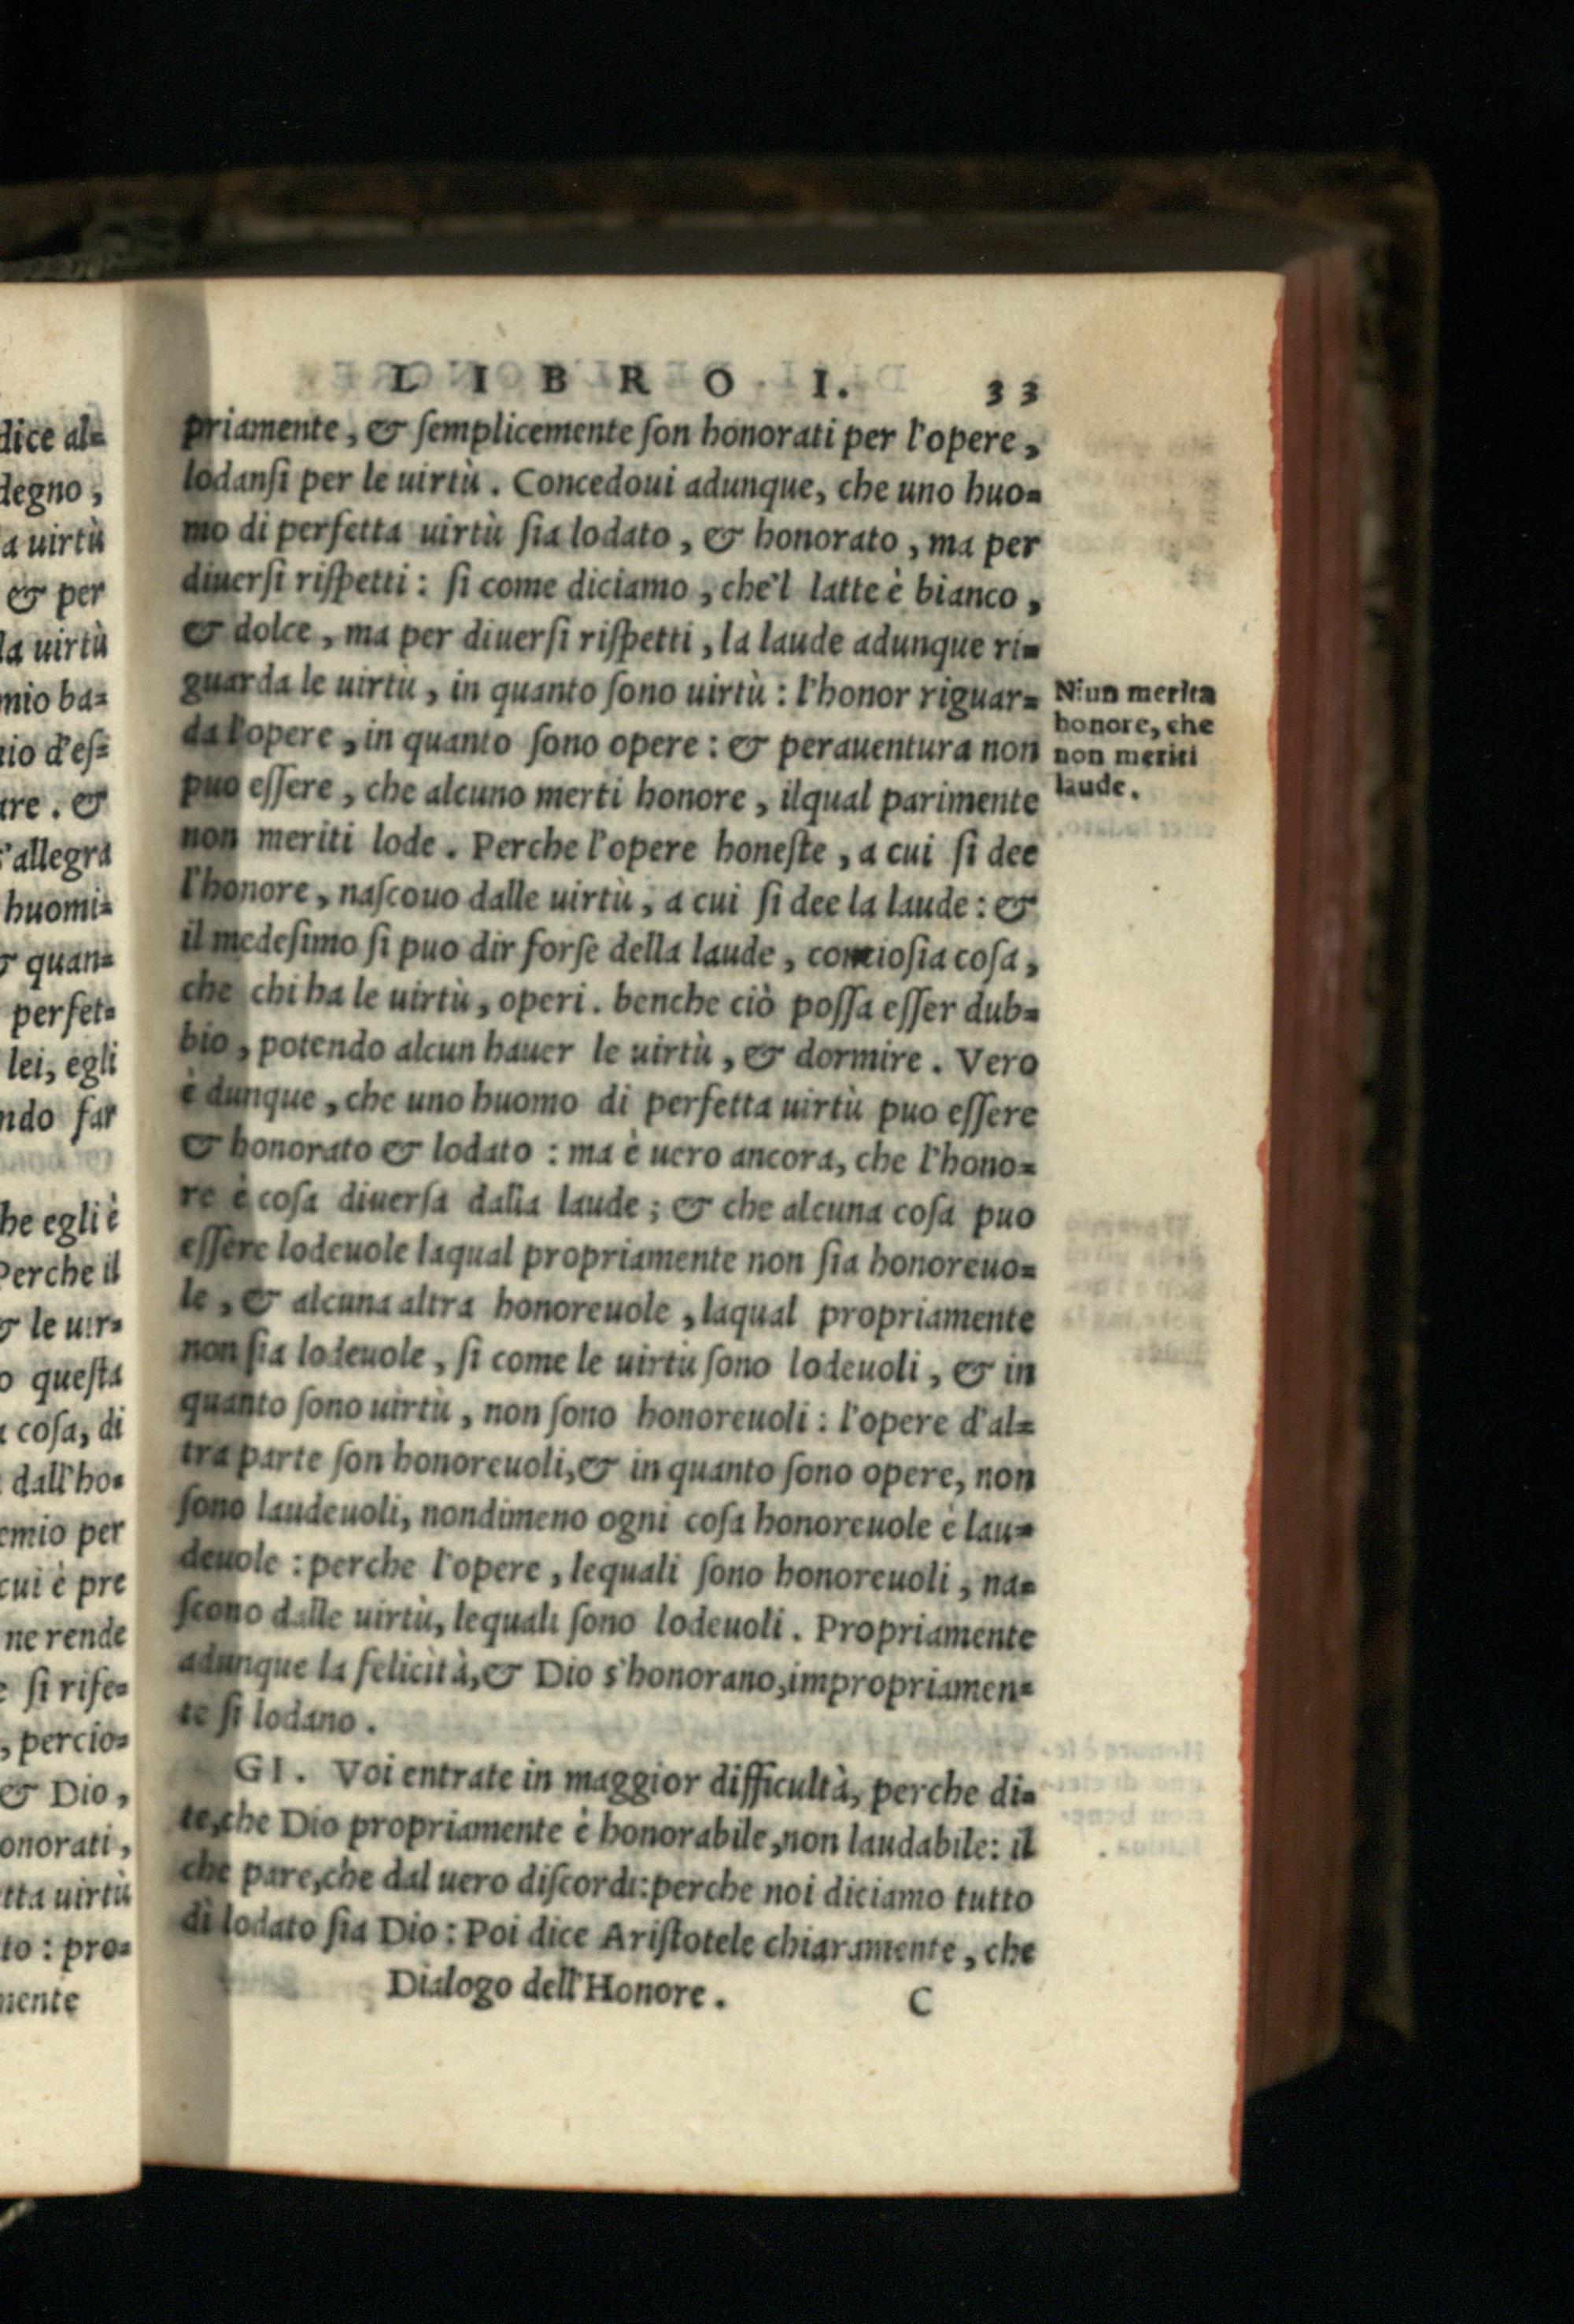 LIBRO I. 33
priamente, & ſemplicemente ſon honorati per l'opere,
lodanſi per le uirtù. Concedoui adunque, che uno huo=
mo di perfetta uirtù ſia lodato, & honorato, ma per
diuerſi riſpetti: ſi come diciamo, che'l latte è bianco,
& dolce, ma per diuerſi riſpetti, la laude adunque ri=
guarda le uirtù, in quanto ſono uirtù: l'honor riguar=
da l'opere, in quanto ſono opere: & perauentura non
puo eſſere, che alcuno merti honore, ilqual parimente
non meriti lode. Perche l'opere honeſte, a cui ſi dee
l'honore, naſcouo dalle uirtù, a cui ſi dee la laude: &
il medeſimo ſi puo dir forſe della laude, concioſia coſa,
che chi ha le uirtù, operi. benche ciò poſſa eſſer dub=
bio, potendo alcun hauer le uirtù, & dormire. Vero
è dunque, che uno huomo di perfetta uirtù puo eſſere
& honorato & lodato: ma è uero ancora, che l'hono=
re è coſa diuerſa dalla laude; & che alcuna coſa puo
eſſere lodeuole laqual propriamente non ſia honoreuo=
le, & alcuna altra honoreuole, laqual propriamente
non ſia lodeuole, ſi come le uirtù ſono lodeuoli, & in
quanto ſono uirtù, non ſono honoreuoli: l'opere d'al=
tra parte ſon honoreuoli, & in quanto ſono opere, non
ſono laudeuoli, nondimeno ogni coſa honoreuole è lau=
deuole: perche l'opere, lequali ſono honoreuoli, na=
ſcono dalle uirtù, lequali ſono lodeuoli. Propriamente
adunque la felicità, & Dio s'honorano, impropriamen=
te ſi lodano.
GI. Voi entrate in maggior difficultà, perche di=
te, che Dio propriamente è honorabile, non laudabile: il
che pare, che dal uero diſcordi: perche noi diciamo tutto
dì lodato ſia Dio: Poi dice Ariſtotele chiaramente, che
Dialogo dell'Honore. C
Niun merita
honore, che
non meriti
laude.
dice al=
degno,
a uirtù
& per
la uirtù
mio ba=
nio d'eſ=
are. &
s'allegra
huomi=
& quan=
perfet=
lei, egli
ndo far
he egli è
Perche il
& le uir=
o queſta
a coſa, di
dall'ho=
emio per
cui è pre
ne rende
e ſi rife=
, percio=
& Dio,
onorati,
tta uirtù
to: pro=
mente